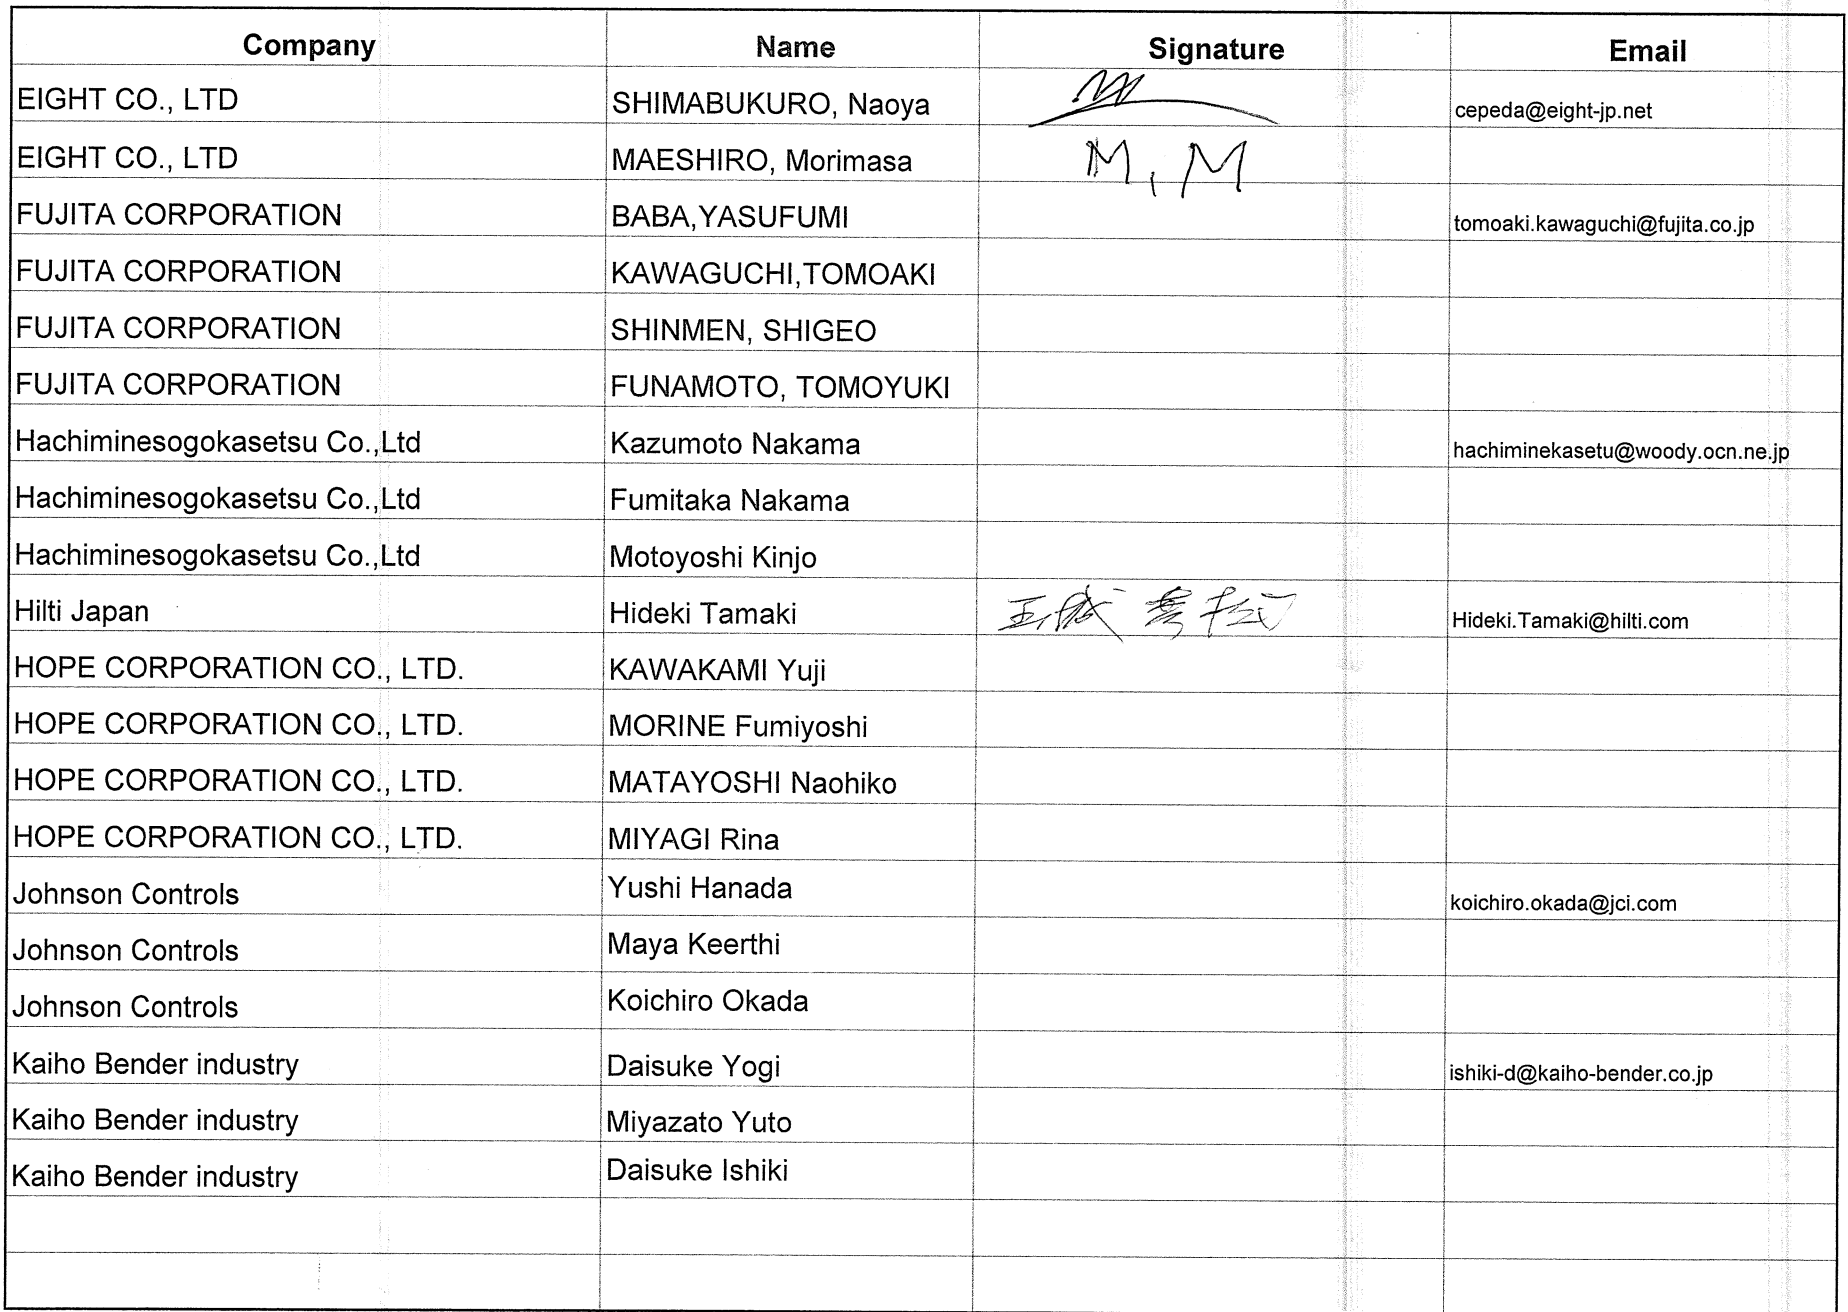 Company Name Signature Email
EIGHT CO., LTD SHIMABUKURO, Naoya cepeda@eight-jp.net
EIGHT CO., LTD MAESHIRO, Morimasa M, M
FUJITA CORPORATION BABA,YASUFUMI tomoaki.kawaguchi@fujita.co.jp
FUJITA CORPORATION KAWAGUCHI,TOMOAKI
FUJITA CORPORATION SHINMEN, SHIGEO
FUJITA CORPORATION FUNAMOTO, TOMOYUKI
Hachiminesogokasetsu Co.,Ltd Kazumoto Nakama hachiminekasetu@woody.ocn.ne.jp
Hachiminesogokasetsu Co.,Ltd Fumitaka Nakama
Hachiminesogokasetsu Co.,Ltd Motoyoshi Kinjo
Hilti Japan Hideki Tamaki 玉城 Hideki.Tamaki@hilti.com
HOPE CORPORATION CO., LTD. KAWAKAMI Yuji
HOPE CORPORATION CO., LTD. MORINE Fumiyoshi
HOPE CORPORATION CO., LTD. MATAYOSHI Naohiko
HOPE CORPORATION CO., LTD. MIYAGI Rina
Johnson Controls Yushi Hanada koichiro.okada@jci.com
Johnson Controls Maya Keerthi
Johnson Controls Koichiro Okada
Kaiho Bender industry Daisuke Yogi ishiki-d@kaiho-bender.co.jp
Kaiho Bender industry Miyazato Yuto
Kaiho Bender industry Daisuke Ishiki